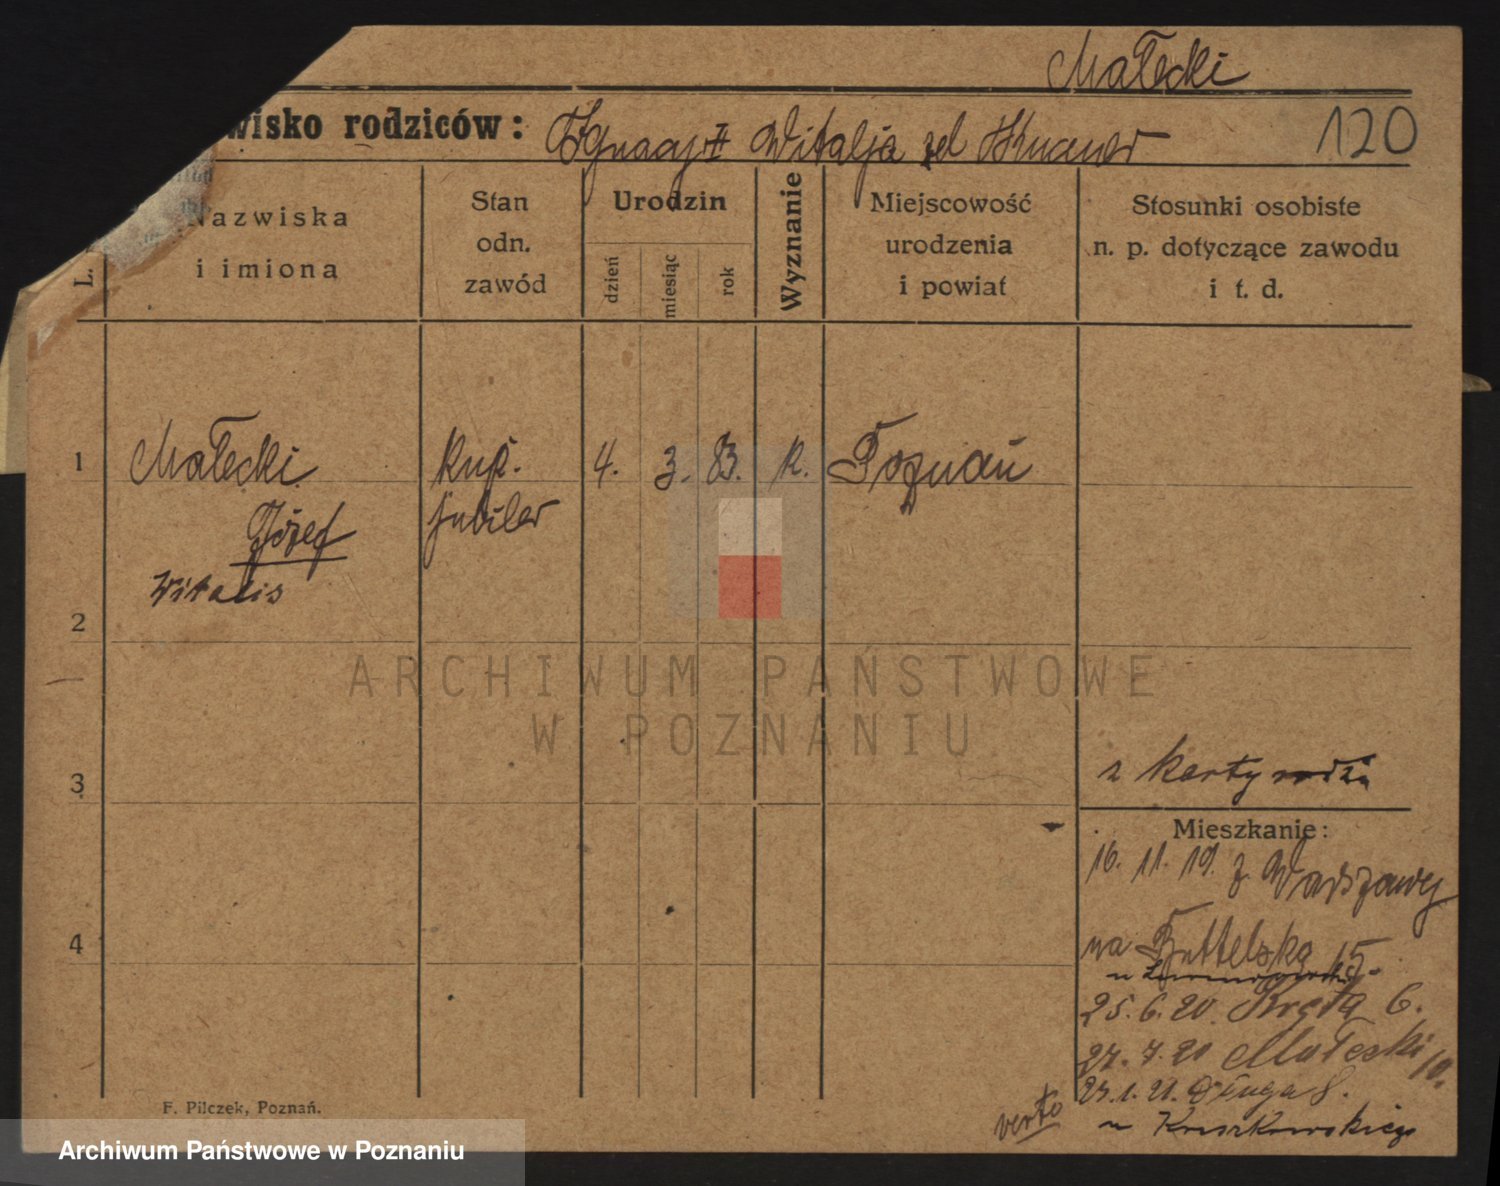 Małecki
wisko rodziców: Ignacy i Witalja zd Knauer
120
L.
Nazwiska
i imiona
Stan
odn.
zawód
Urodzin
dzień
miesiąc
rok
Wyznanie
Miejscowość
urodzenia
i powiat
Stosunki osobiste
n. p. dotyczące zawodu
i t. d.
1
Małecki
Józef
Witalis
kup.
jubiler
4. 3. 83. k. Poznań
2
3
z karty rodzi
Mieszkanie:
16. 11. 19. z Warszawy
4
na 15.
u
25. 6. 20. Kręta 6.
27. 7. 20 Małecki 10.
27. 1. 21. Długa 8.
verto
F. Pilczek, Poznań.
ARCHIWUM PAŃSTWOWE
W POZNANIU
Archiwum Państwowe w Poznaniu